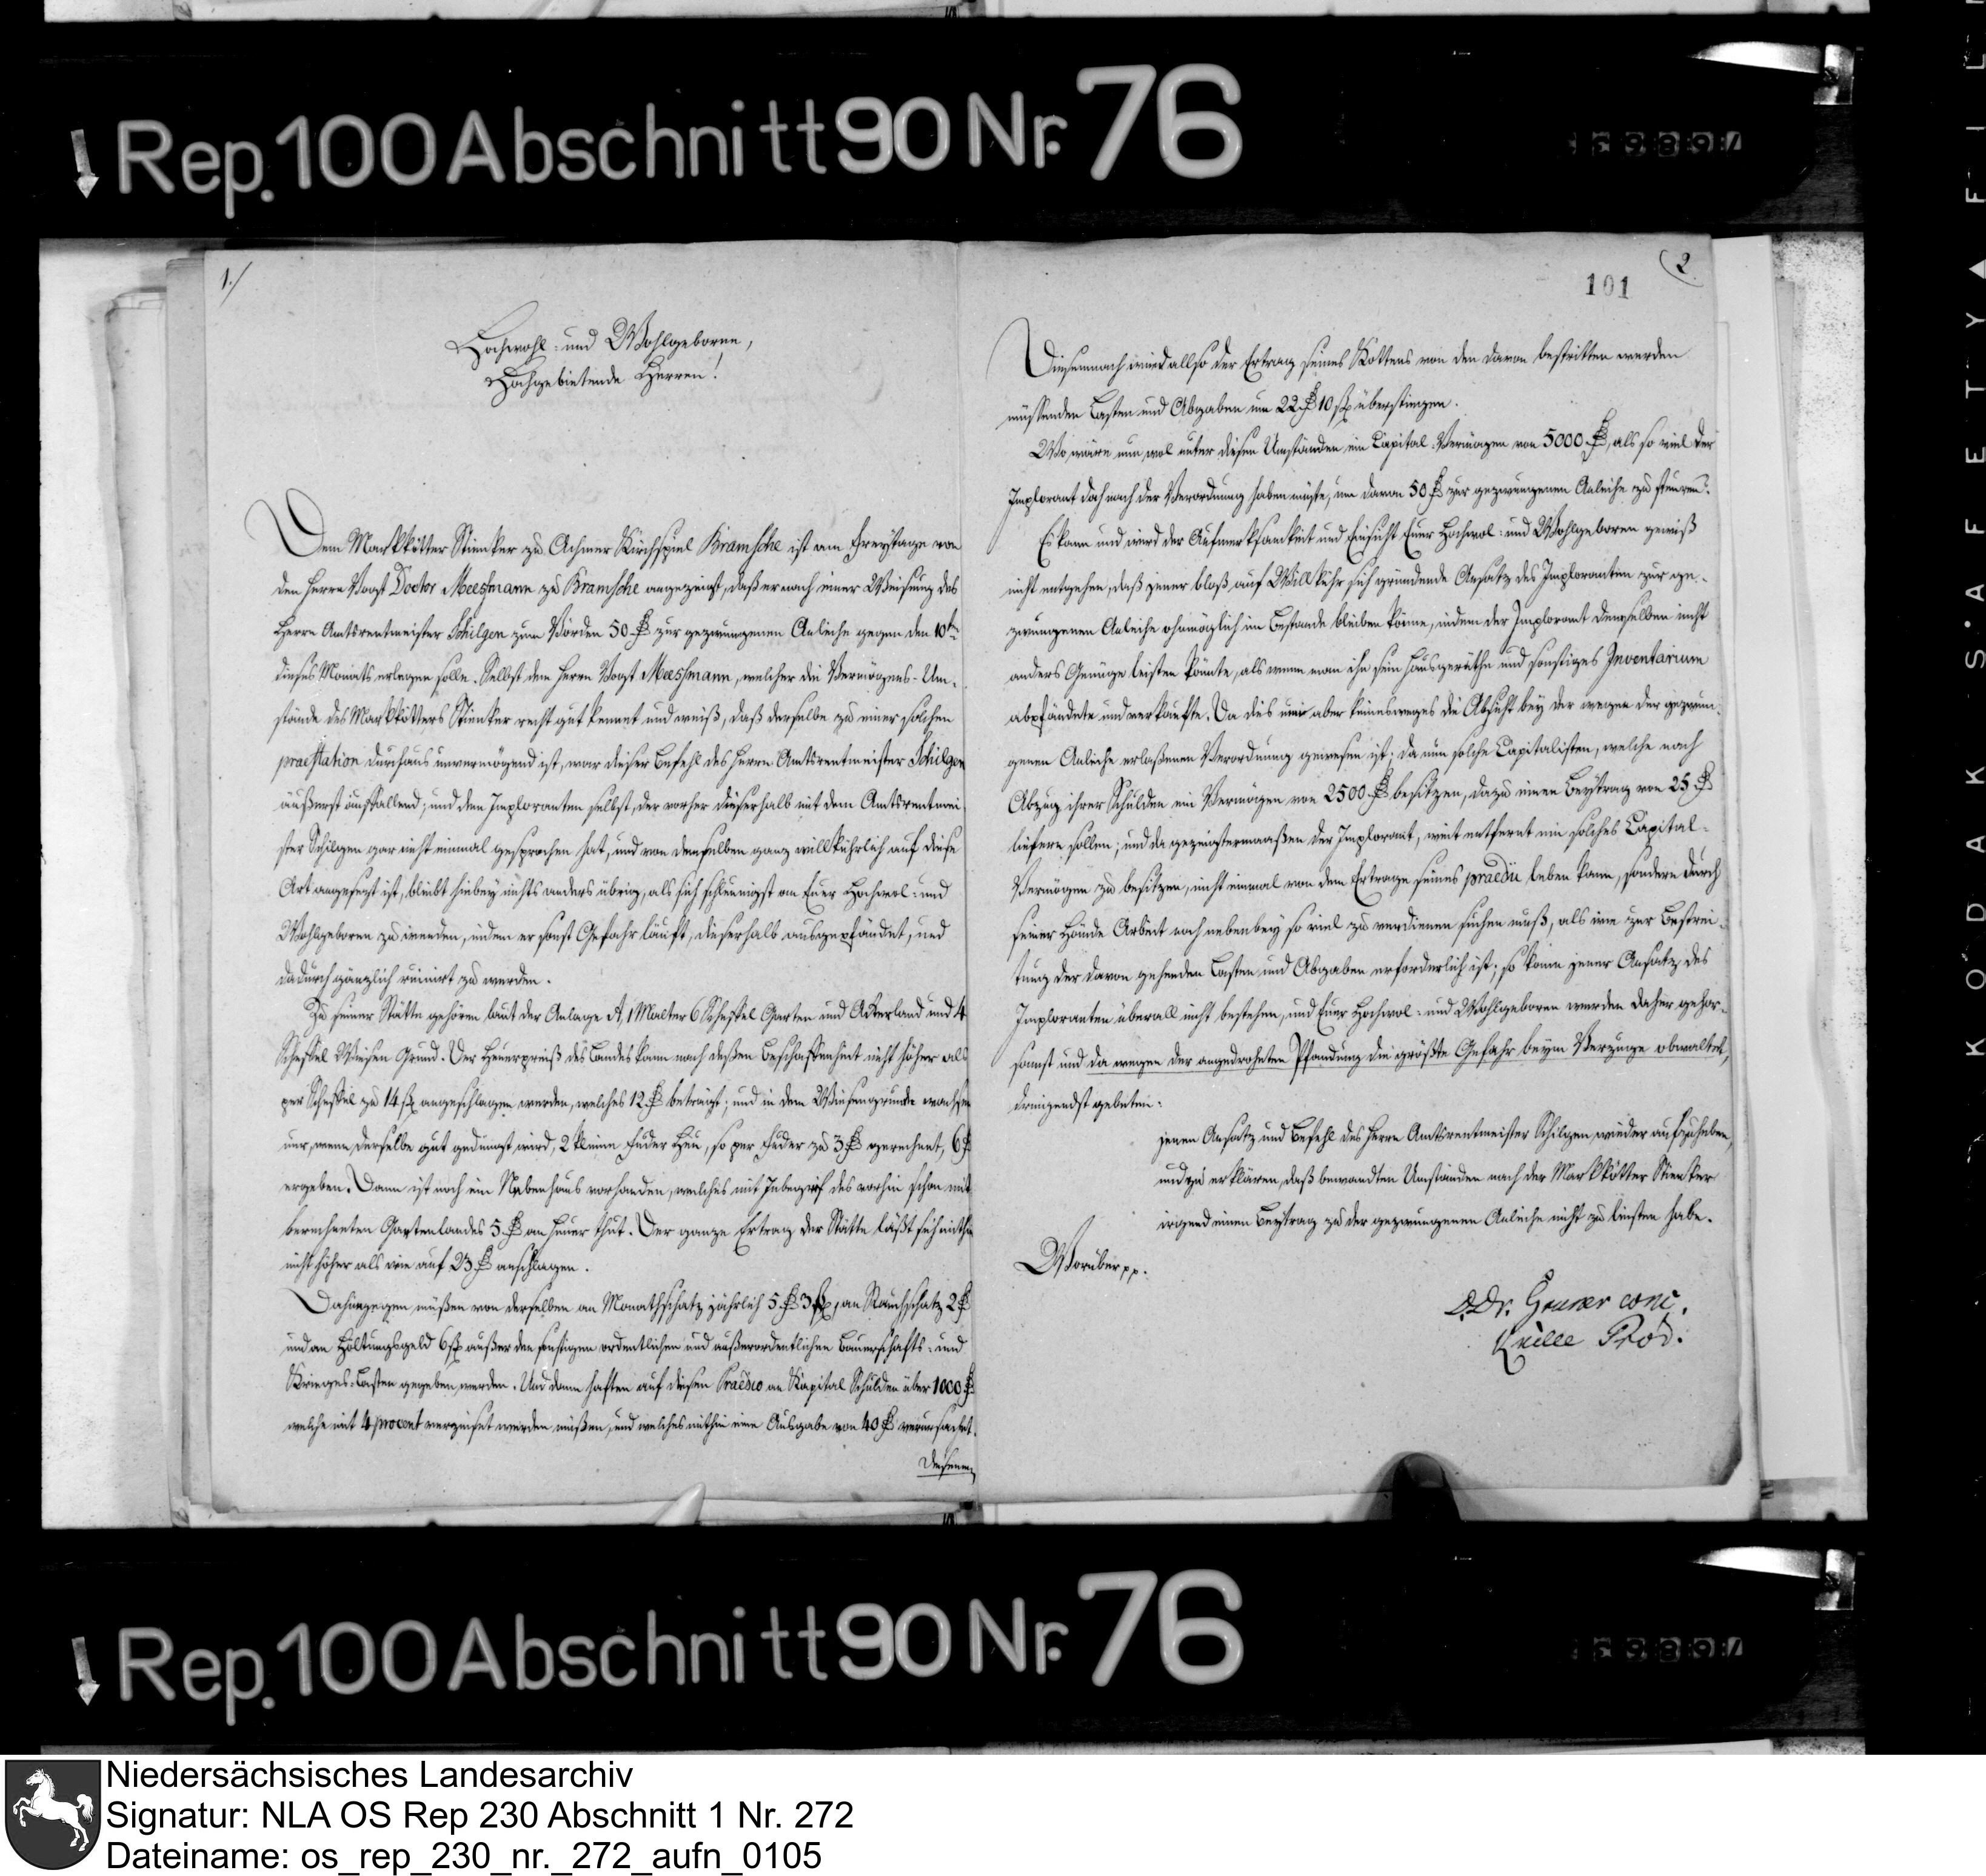 Rep. 100 Abschnitt 90 Nr. 76
1./
Hochwohl- und Wohlgeborne,
Hochgebietende Herren!
Dem Markkötter Stienker zu Achmer Kirchspiel Bramsche ist am Freytage von
den Herrn Vogt Doctor Meessmann zu Bramsche angezeigt, daß er nach einer Weisung des
Herrn Amtsrentmeister Schilgen zum Vörden 50 ₰ zur gezwungenen Anleihe gegen den 10ten
dieses Monats erlegen solle. Selbst dem Herrn Vogt Meessmann, welcher die Vermögens-Um-
stände des Markkötters Stienker recht gut kennet und weiß, daß derselbe zu einer solchen
praestation durchaus unvermögend ist, war dieser Befehl des Herrn Amtsrentmeister Schilgen
äußerst auffallend; und dem Imploranten selbst, der vorher dieserhalb mit dem Amtsrentmei
ster Schilgen gar nicht einmal gesprochen hat, und von demselben ganz willkührlich auf diese
Art angesezt ist, bleibt hiebey nichts anders übrig, als sich schleunigst an Euer Hochwol- und
Wohlgeboren zu wenden, indem er sonst Gefahr läuft, dieserhalb ausgepfändet, und
dadurch gänzlich ruinirt zu werden.
Zu seiner Stätte gehören laut der Anlage A, 1 Malter 6 Scheffel Garten und Ackerland und 4
Scheffel Wiesen Grund. Der Heuerpreiß des Landes kann nach deßen Beschaffenheit nicht höher als
per Scheffel zu 14 ß angeschlagen werden, welches 12 ₰ beträgt; und in dem Wiesengrunde wachsen
nur, wenn derselbe gut gedüngt wird, 2 kleine Fuder Heu, so per Fuder zu 3 ₰ gerechnet, 6 ₰
ergeben. Dann ist noch ein Nebenhaus vorhanden, welches mit Inbegrif des vorhin schon mit
berechneten Gartenlandes 5 ₰ an Heuer thut. Der ganze Ertrag der Stätte läßt sich mithin
nicht höher als wie auf 23 ₰ anschlagen.
Dahingegen müßen von derselben an Monathschatz jährlich 5 ₰ 3 ß, an Rauchschatz 2 ₰
und an Höltungsgeld 6 ß außer den sonstigen ordentlichen und außerordentlichen Bauerschafts- und
Krieges-Lasten gegeben werden. Und dann haften auf diesen Praedio an Kapital Schulden über 1000 ₰
welche mit 4 procent verzinset werden müßen, und welches mithin eine Ausgabe von 40 ₰ verursachet.
Diesemn
2
101
Diesemnach wird allso der Ertrag seines Kottens von den davon bestritten werden
müssenden Lasten und Abgaben um 22 ₰ 10 ß überstiegen.
Wo wäre nun wol unter diesen Umständen ein Capital-Vermögen von 5000 ₰, als so viel der
Implorant doch nach der Verordnung haben müßte, um davon 50 ₰ zur gezwungenen Anleihe zu steuren?
Es kann und wird der Aufmerksamkeit und Einsicht Euer Hochwol- und Wohlgeboren gewiß
nicht entgehen, daß jener bloß auf Willkühr sich gründende Ansatz des Imploranten zur ge-
zwungenen Anleihe ohnmöglich im Bestande bleiben könne, indem der Implorant demselben nicht
anders Genüge leisten könnte, als wenn man ihn sein Hausgeräthe und sonstiges Inventarium
abpfändete und verkaufte. Da dies nun aber keinesweges die Absicht bey der wegen der gezwun-
genen Anleihe erlaßenen Verordnung gewesen ist; da nun solche Capitalisten, welche nach
Abzug ihrer Schulden ein Vermögen von 2500 ₰ besitzen, dazu einen Beytrag von 25 ₰
liefern sollen; und da gezeigtermaaßen der Implorant, weit entfernt ein solches Capital-
Vermögen zu besitzen, nicht einmal von dem Ertrage seines praedii leben kann, sondern durch
seiner Hände Arbeit noch nebenbey so viel zu verdienen suchen muß, als wie zur Bestrei-
tung der davon gehenden Lasten und Abgaben erforderlich ist; so kann jener Ansatz des
Imploranten überall nicht bestehen, und Euer Hochwol- und Wohlgeboren werden daher gehor-
samst und da wegen der angedroheten Pfandung die größte Gefahr beym Verzuge obwaltet,
dringendst gebeten:
jenen Ansatz und Befehl des Herrn Amtsrentmeister Schilgen wieder aufzuheben,
und zu erklären, daß bewandten Umständen nach der Markkötter Stienker
irgend einen Beytrag zu der gezwungenen Anleihe nicht zu leisten habe.
Worüber pp.
D. Dr. Gruner conc.
Krille Prod.
Rep. 100 Abschnitt 90 Nr. 76
KODAK SAFETY FILM
Niedersächsisches Landesarchiv
Signatur: NLA OS Rep 230 Abschnitt 1 Nr. 272
Dateiname: os_rep_230_nr._272_aufn_0105